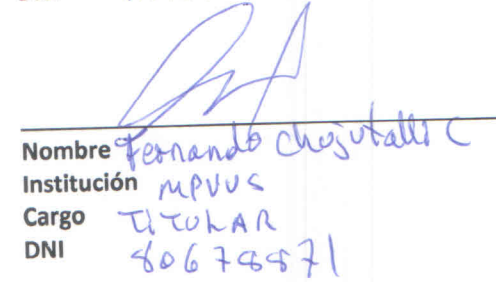 Nombre Fernando Chojutalli C
Institución MPVUS
Cargo TITULAR
DNI 80678871